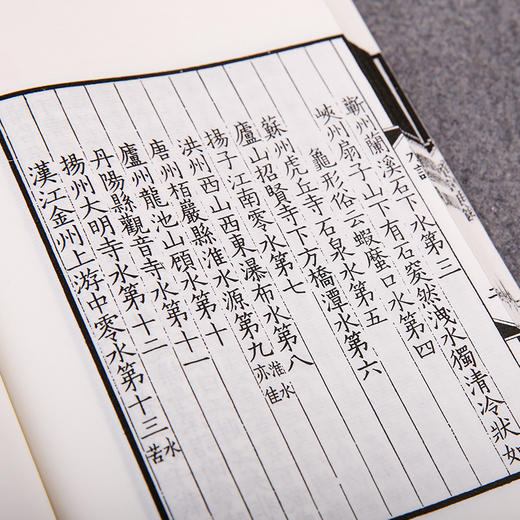 蘄州蘭溪石下水第三
峽州扇子山下有石突然洩水獨清冷狀如
龜形俗云蝦蟇口水第四
蘇州虎丘寺石泉水第五
廬山招賢寺下方橋潭水第六
揚子江南零水第七
洪州西山西東瀑布水第八
唐州栢巖縣淮水源第九淮水亦佳
廬州龍池山顧水第十
丹陽縣觀音寺水第十一
揚州大明寺水第十二
漢江金州上游中零水第十三水苦